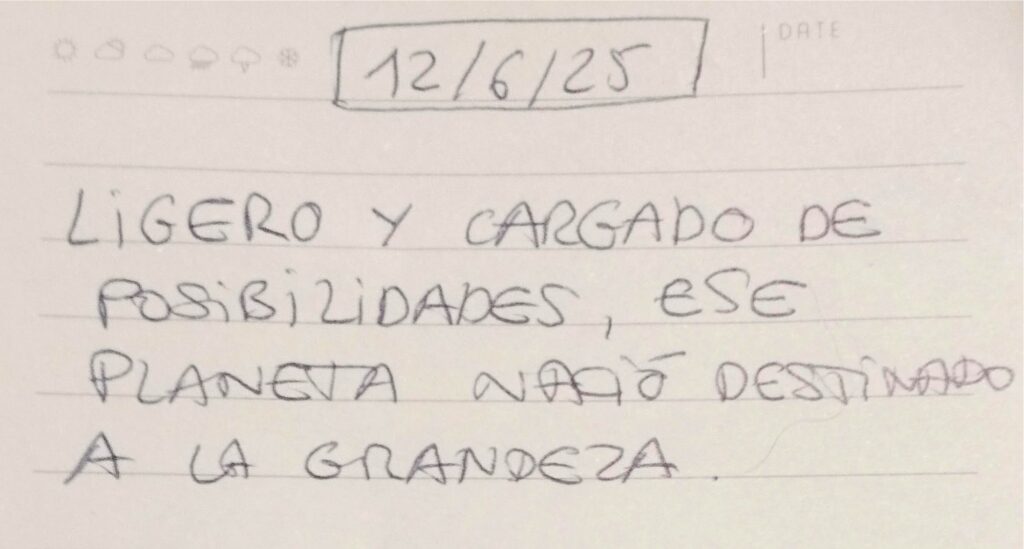 12/6/25
DATE
LiGERO Y CARGADO DE
POSiBiLiDADES, ESE
PLANETA NACIÓ DESTINADO
A LA GRANDEZA.